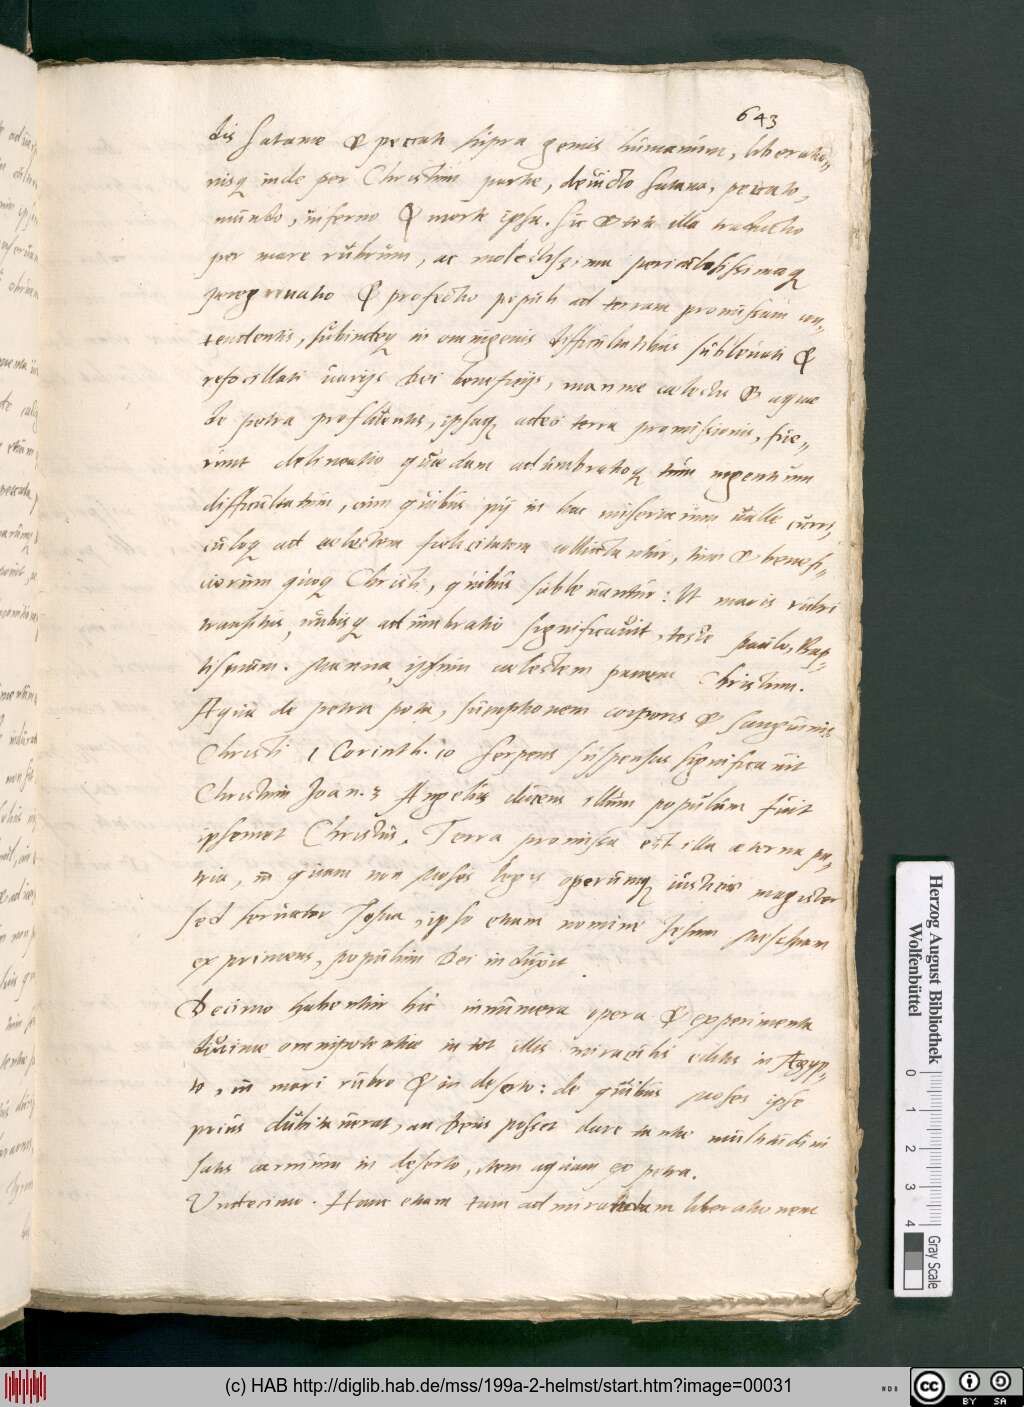 643
dis Satanae & peccati supra genus humanum, liberatio„
nisq inde per Christum partae, deuicto Satana, peccato,
mundo, inferno & morte ipsa. Sic & tota illa traductio
per mare rubrum, ac molestissima periculosissimaq
peregrinatio & profectio populi ad terram promissam con„
tendentis, subindeq in omnigenis difficultatibus subleuati &
refocillati uarijs Dei beneficijs, mannae caelestis & aquae
de petra profluentis, ipsaq adeo terra promissionis, fue„
runt delineatio quaedam adumbratioq tum ingentium
difficultatum, cum quibus pij in hac miseriarum ualle curri„
culoq ad caelestem felicitatem colluctantur, tum & benefi„
ciorum quoq Christi, quibus subleuantur: Ut maris rubri
transitus, nubisq adumbratio significauit, teste Paulo, Bap„
tismum. Manna, ipsum caelestem panem Christum.
Aqua de petra pota, sumptionem corporis & sanguinis
Christi 1 Corinth. 10 Serpens suspensus significauit
Christum Joan. 3 Angelus ducens illum populum fuit
ipsemet Christus. Terra promissa est illa aeterna pa„
tria, in quam non Moses legis operumq iustitiae magister
sed seruator Josua, ipso etiam nomine Jesum Messiam
exprimens, populum Dei induxit.
Decimo habentur hic innumera opera & experimenta
diuinae omnipotentiae in tot illis miraculis editis in Aegyp„
to, in mari rubro & in deserto: de quibus Moses ipse
prius dubitauerat, an Deus posset dare tantae multitudini
satis carnium in deserto, item aquam ex petra.
Undecimo. Hanc etiam tam admirandam liberationem
Herzog August Bibliothek
Wolfenbüttel
0 1 2 3 4
Gray Scale
(c) HAB http://diglib.hab.de/mss/199a-2-helmst/start.htm?image=00031
cc BY SA